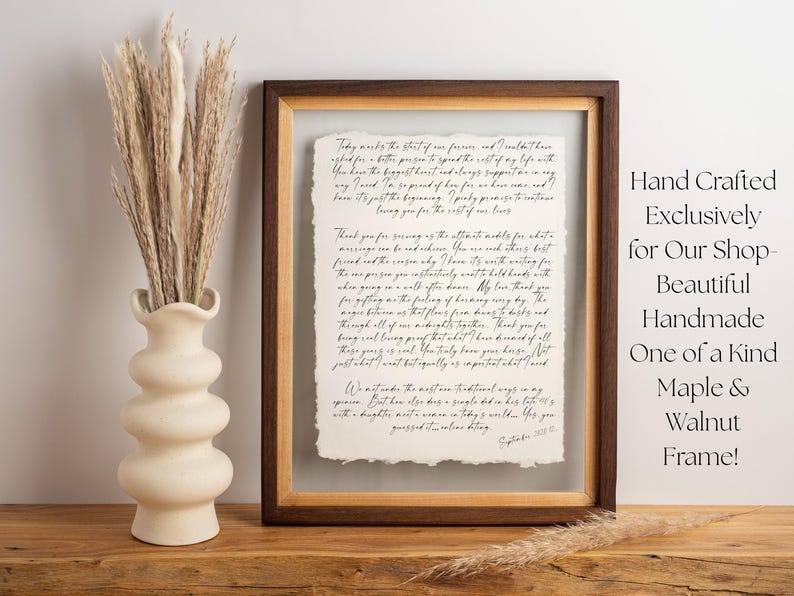 Today marks the start of our forever, and I couldn't have
asked for a better person to spend the rest of my life with.
You have the biggest heart, and always support me in any
way I need. I'm so proud of how far we have come, and I
know it's just the beginning. I pinky promise to continue
loving you for the rest of our lives
Thank you for serving as the ultimate models for what a
marriage can be and achieve. You are each others' best
friend, and the reason why I know it's worth waiting for
the one person you instinctively want to hold hands with
when going on a walk after dinner. My love, thank you
for gifting me the feeling of harmony every day. The
magic between us that flows from dawns to dusks and
through all of our midnights together. Thank you for
being real living proof that what I have dreamed of all
these years is real. You truly know your horse. Not
just what I want, but equally as important what I need.
We met under the most non-traditional ways in my
opinion. But how else does a single dad in his late 40's
with a daughter, meet a woman in today's world... Yes, you
guessed it... online dating.
September 2020
Hand Crafted
Exclusively
for Our Shop-
Beautiful
Handmade
One of a Kind
Maple &
Walnut
Frame!